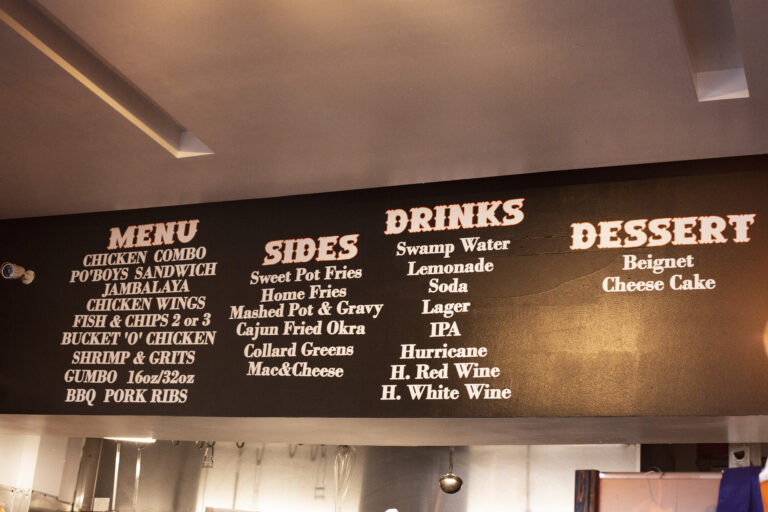 MENU
CHICKEN COMBO
PO'BOYS SANDWICH
JAMBALAYA
CHICKEN WINGS
FISH & CHIPS 2 or 3
BUCKET 'O' CHICKEN
SHRIMP & GRITS
GUMBO 16oz/32oz
BBQ PORK RIBS
SIDES
Sweet Pot Fries
Home Fries
Mashed Pot & Gravy
Cajun Fried Okra
Collard Greens
Mac&Cheese
DRINKS
Swamp Water
Lemonade
Soda
Lager
IPA
Hurricane
H. Red Wine
H. White Wine
DESSERT
Beignet
Cheese Cake